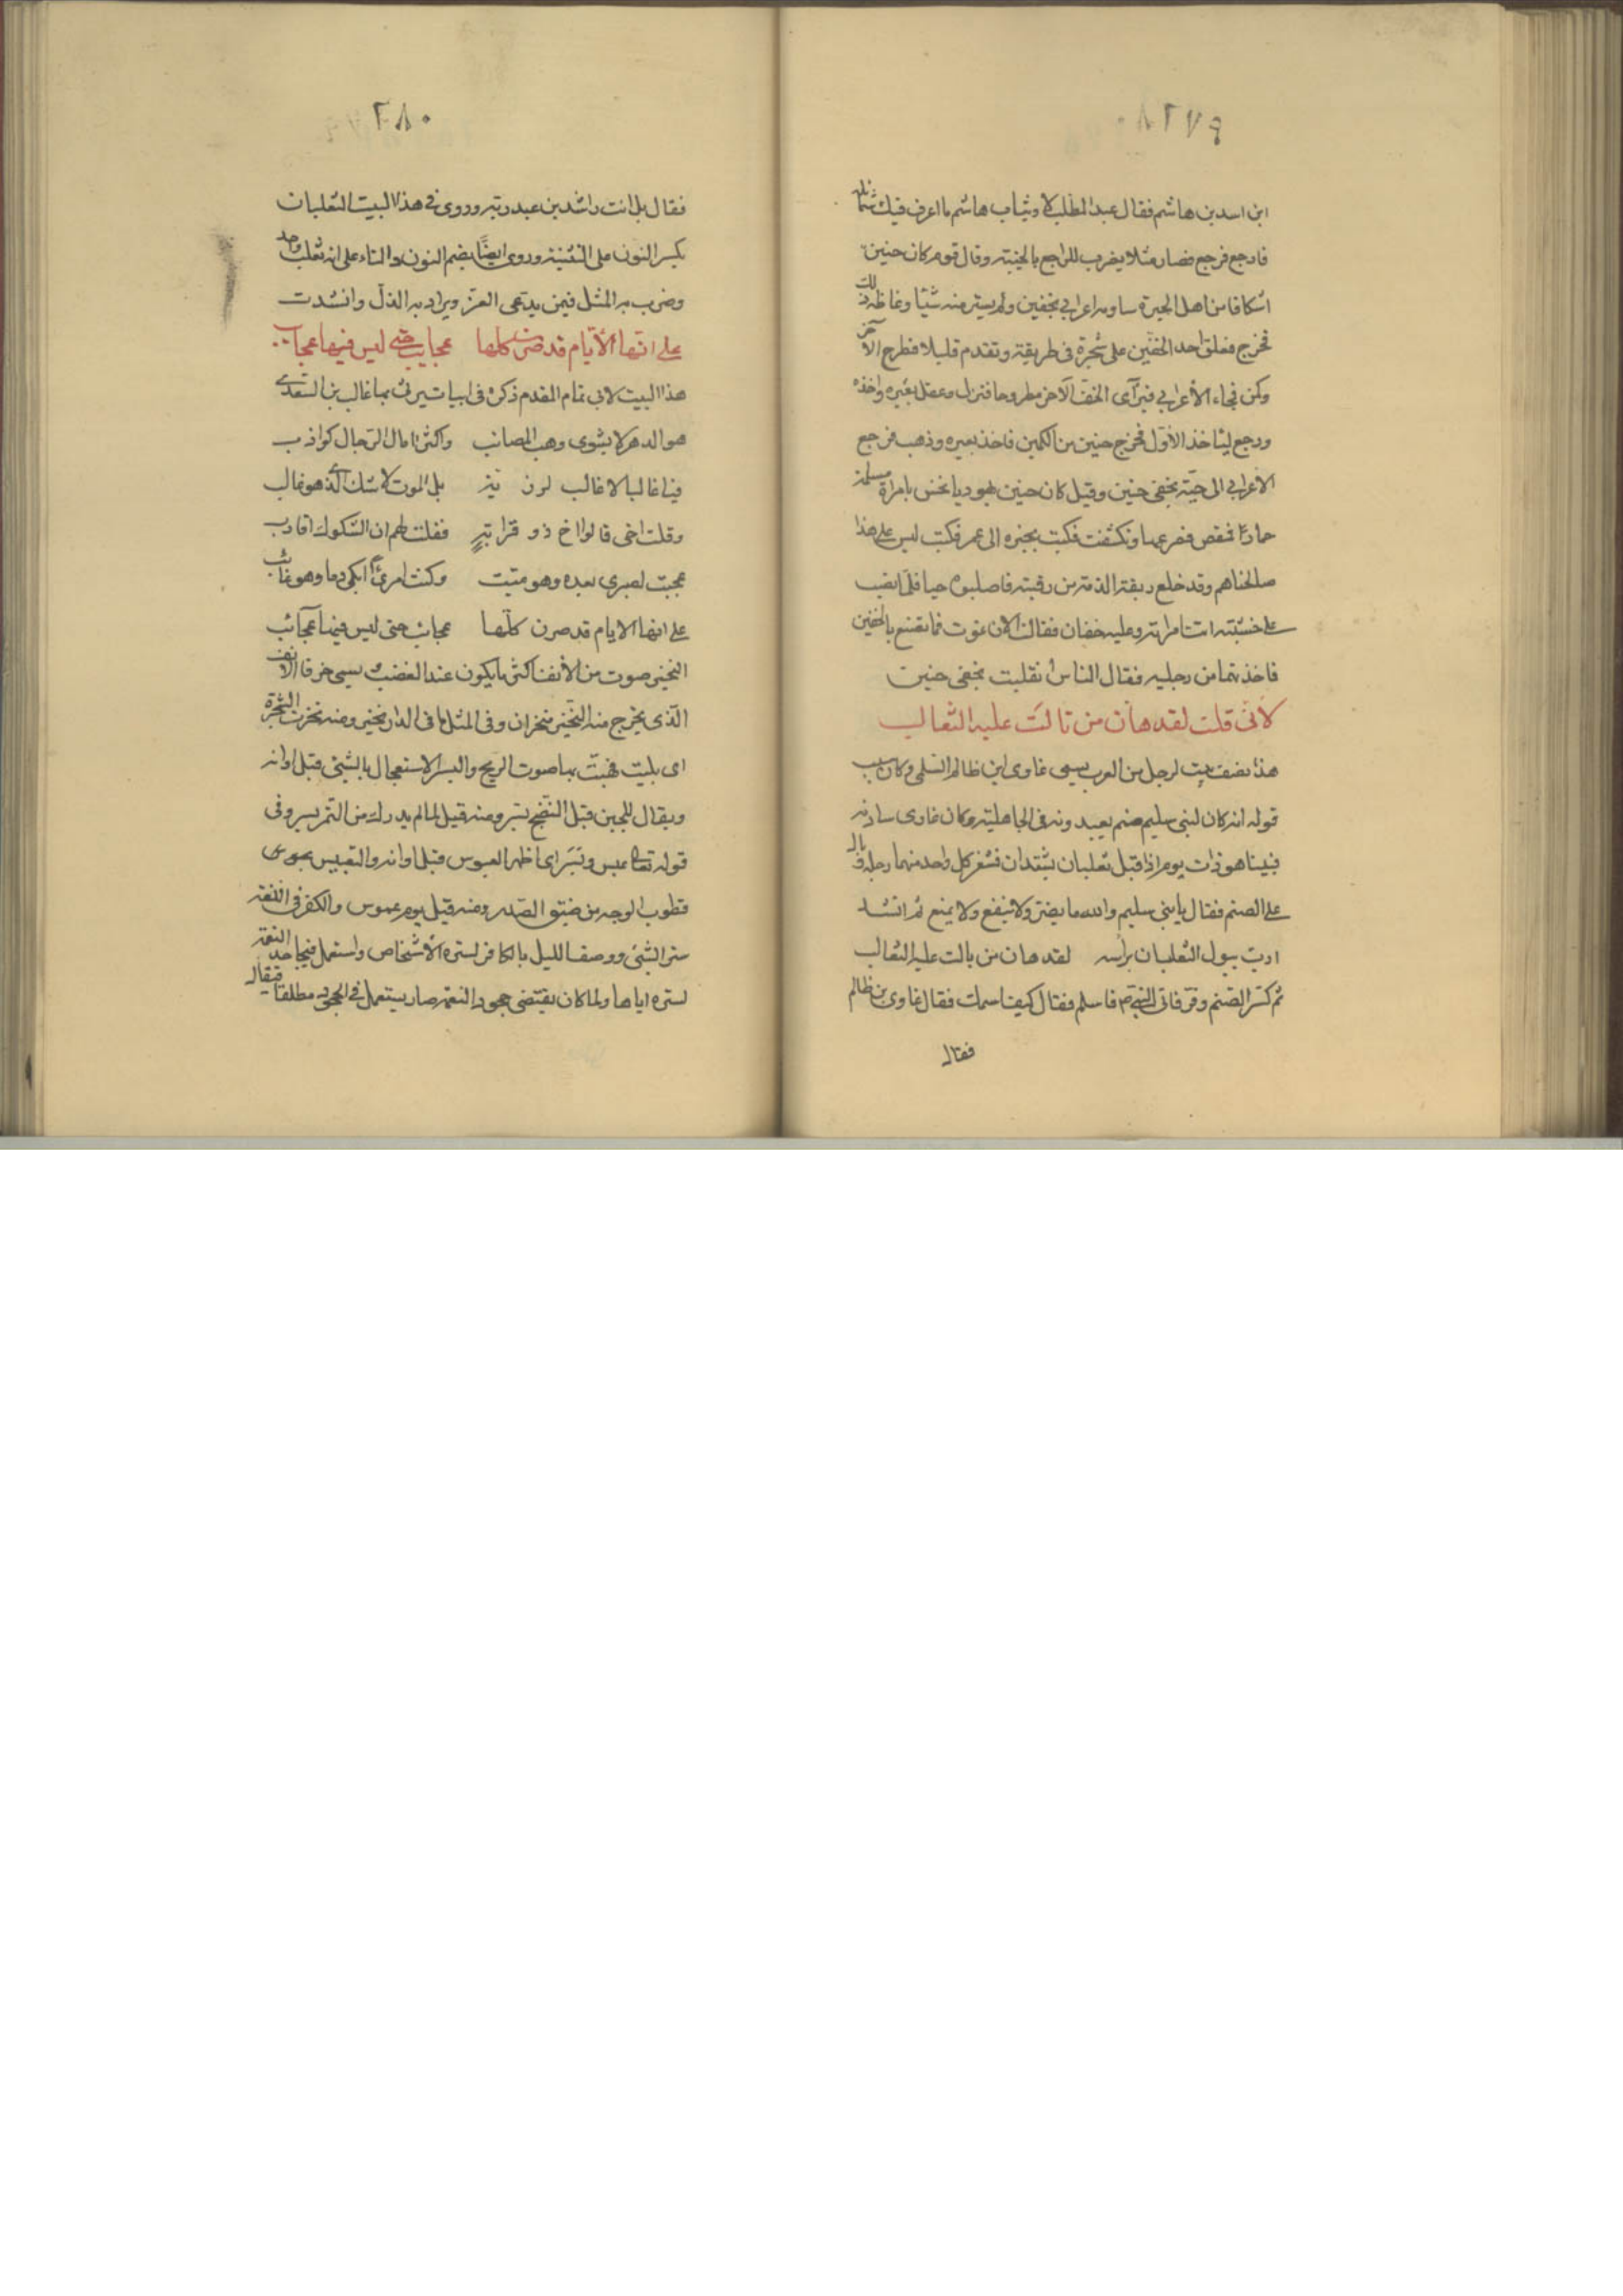 ٢٧٩
ابن اسد بن هاشم فقال عبد المطلب لا وثياب هاشم ما اعرف فيك شمائله
فارجع فرجع فصار مثلا يضرب للراجع بالخيبة وقال قوم كان حنين
اسكافا من اهل الحيرة ساومه اعرابي بخفين ولم يشتر منه شيئا وغاظه ذلك
فخرج فعلق احد الخفين على شجرة في طريقه وتقدم قليلا فطرح الآخر
وكمن فجاء الأعرابي فرآى الخف الآخر مطروحا فنزل وعقل بعيره واخذه
ورجع ليأخذ الاوّل فخرج حنين من الكمين فاخذ بعيره وذهب فرجع
الأعرابي الى حيّه بخفي حنين وقيل كان حنين يهوديا نخس بامرأة مسلمة
حمارًا فقمص فصرعها وتكشفت فكتب بخبره الى عمر فكتب ليس على هذا
صالحناهم وقد خلع ربقة الذمة من رقبته فاصلبوه حيا فلمّا نصب
على خشبته اتت امراته وعليه خفان فقالت الان تموت فما تصنع بالخفين
فاخذتهما من رجليه فقال الناس انقلبت بخفي حنين
لانّى قلت لقد هان من بالت عليه الثعالب
هذا نصف بيت لرجل من العرب يسمى غاوى ابن ظالم السلمي وكان سبب
قوله انه كان لبني سليم صنم يعبدونه في الجاهلية وكان غاوى سادنه
فبينا هو ذات يوم اذ اقبل ثعلبان يشتدان فشغر كل واحد منهما رجله وبال
على الصنم فقال يا بني سليم والله ما يضر ولا ينفع ولا يمنع ثم انشد
اربّ يبول الثعلبان برأسه لقد هان من بالت عليه الثعالب
ثم كسّر الصنم وفرّ فاتى النبي ص فاسلم فقال كيف اسمك فقال غاوى بن ظالم
فقال
٢٨٠
فقال بل انت راشد بن عبد ربّه وروى في هذا البيت الثعلبان
بكسر النون على التثنية وروى ايضًا بضم النون والثاء على انه ثعلب واحد
وضرب به المثل فيمن يدّعى العزّ ويراد به الذلّ وانشدت
على انها الأيّام قد صرن كلها عجايب حتى ليس فيها عجايب
هذا البيت لابي تمام المقدم ذكره في ابيات يرثى بها غالب بن السعدي
هو الدهر لا يشوى وهن المصائب واكثر امال الرجال كواذب
فيا غالبا لا غالب لرزيّة بل الموت لا شك الذي هو غالب
وقلت اخى قالوا اخ ذو قرابةٍ فقلت لهم ان الشكول اقارب
عجبت لصبرى بعده وهو ميّت وكنت امرئً ابكى دما وهو غائب
على انها الايام قد صرن كلّها عجائب حتى ليس فيها عجآئب
النخير صوت من الأنف اكثر ما يكون عند الغضب ويسمى خرقا الانف
الذى يخرج منه النخير منخران وفي المثل ما في الدار نخير ومنه نخرت الشجرة
اى بليت فهبّت بها صوت الريح والبسر الاستعجال بالشيئ قبل اوانه
ويقال للجبن قبل النضج بسر ومنه قيل لما لم يدرك من التمر بسر وفى
قوله تعالى عبس وبَسَر اى اظهر العبوس قبل اوانه والتعبيس عبوس
قطوب الوجه من ضيق الصّدر ومنه قيل يوم عبوس والكفر في اللغة
ستر الشيئ ووصف الليل بالكافر لستره الأشخاص واستعمل فيجاحد النعمة
لستره اياها ولما كان يقتضى جحود النعمة صار يستعمل في الجحود مطلقا فيقال